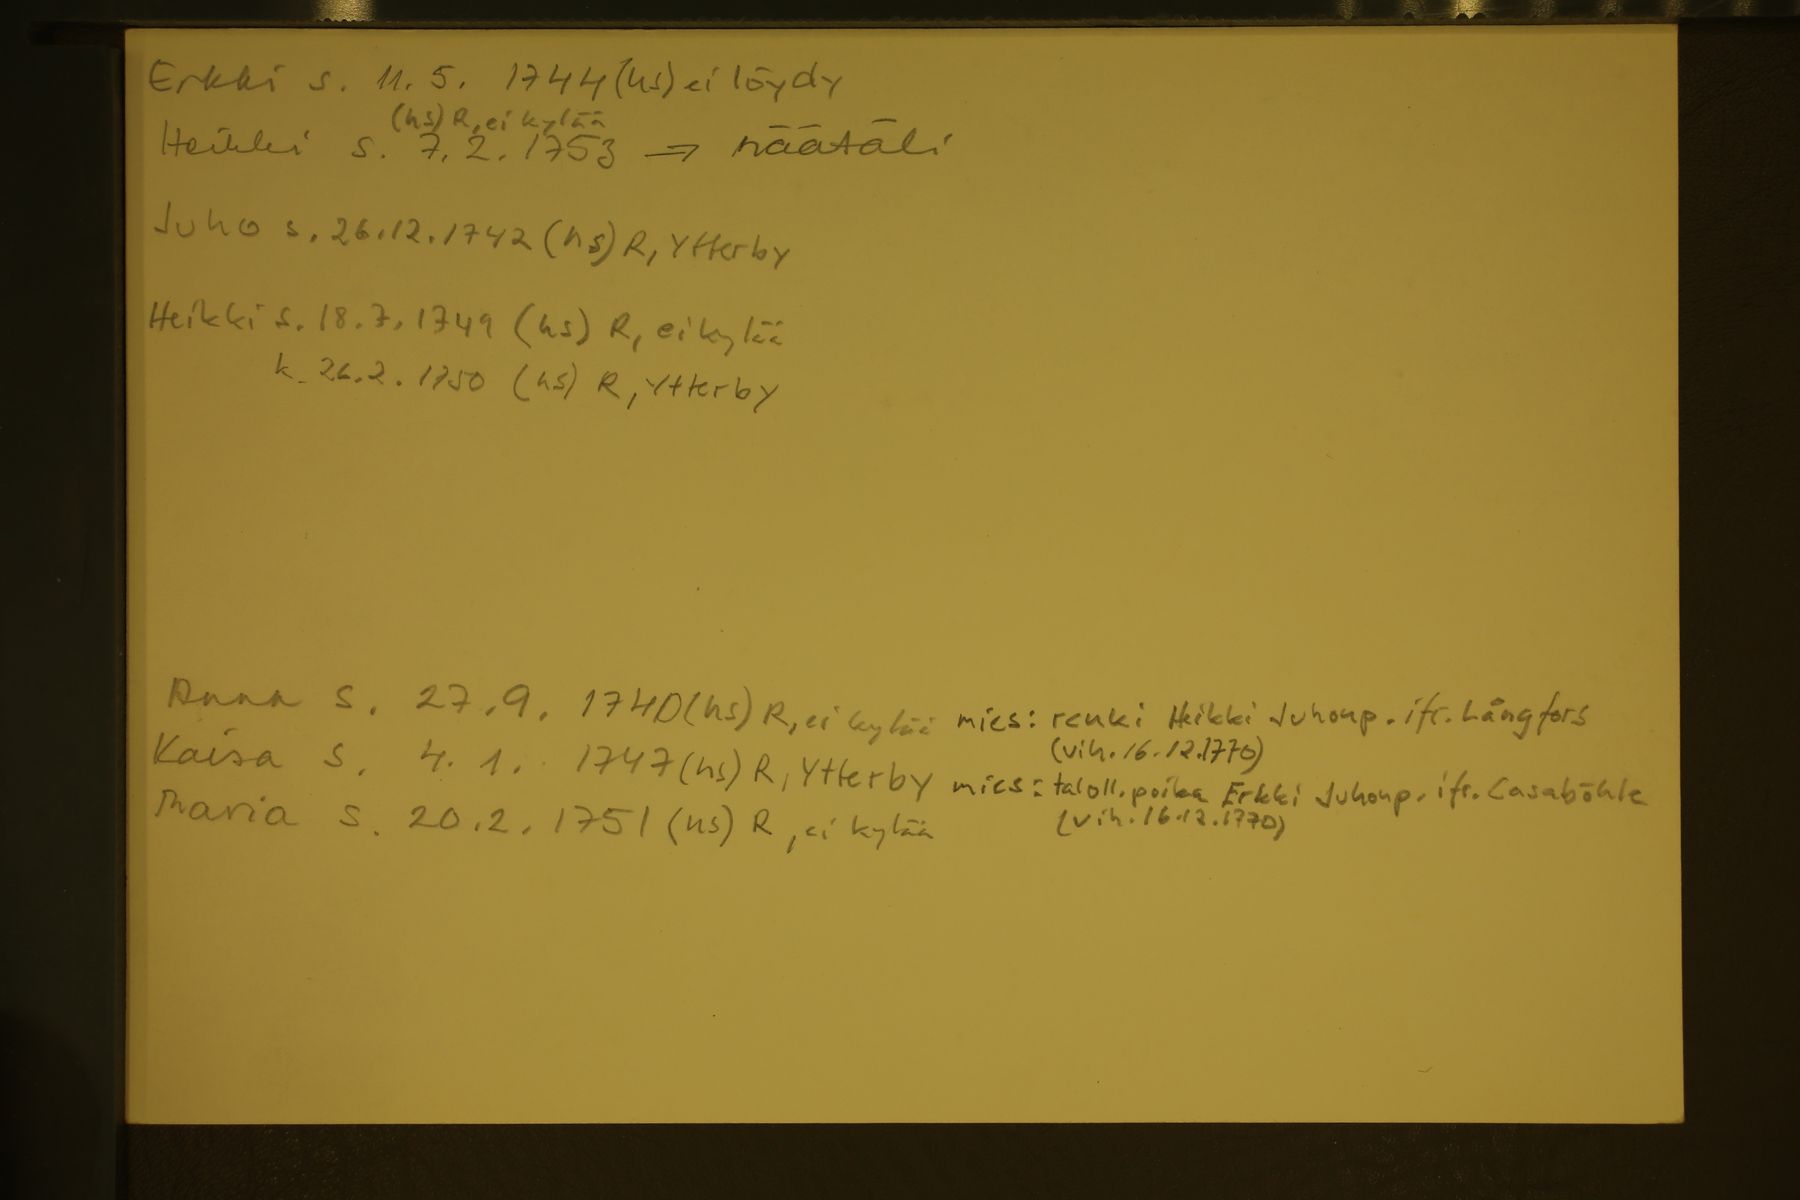 Erkki s. 11. 5. 1744 (hs) ei löydy
(hs) R, ei kylää
Heikki s. 7. 2. 1753 → räätäli
Juho s. 26.12.1742 (hs) R, Ytterby
Heikki s. 18.7.1749 (hs) R, ei kylää
k. 26.2.1750 (hs) R, Ytterby
Anna s. 27.9. 1740 (hs) R, ei kylää mies: renki Heikki Juhonp. ifr. Långfors
(vih. 16.12.1770)
Kaisa s. 4. 1. 1747 (hs) R, Ytterby mies: taloll. poika Erkki Juhonp. ifr. Casaböhle
(vih. 16.12.1770)
Maria s. 20.2. 1751 (hs) R, ei kylää